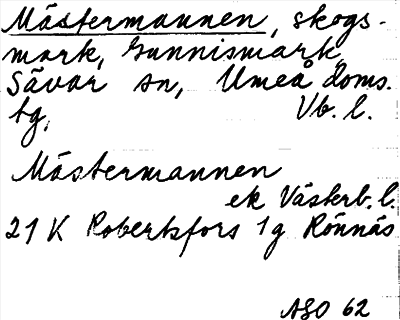 Mästermannen, skogs-
mark, Gunnismark,
Sävar sn, Umeå doms.
tg, Vb. l.
Mästermannen
ek Västerb. l.
21 K Robertsfors 1 g Rönnäs
ASO 62